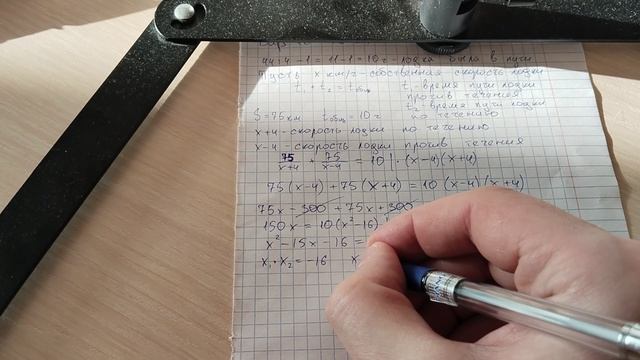 4+4-1=11-1=10 ч - лодка была в пути
Пусть x км/ч - собственная скорость лодки
t₁ + t₂ = tобщ t₁ - время пути лодки
против течения
t₂ - время пути лодки
S=75км tобщ = 10 ч по течению
x+4 - скорость лодки по течению
x-4 - скорость лодки против течения
75/x+4 + 75/x-4 = 10 | ·(x-4)(x+4)
75(x-4) + 75(x+4) = 10(x-4)(x+4)
75x - 300 + 75x + 300
150x = 10(x²-16)
x² - 15x - 16 =
x₁·x₂ = -16 x